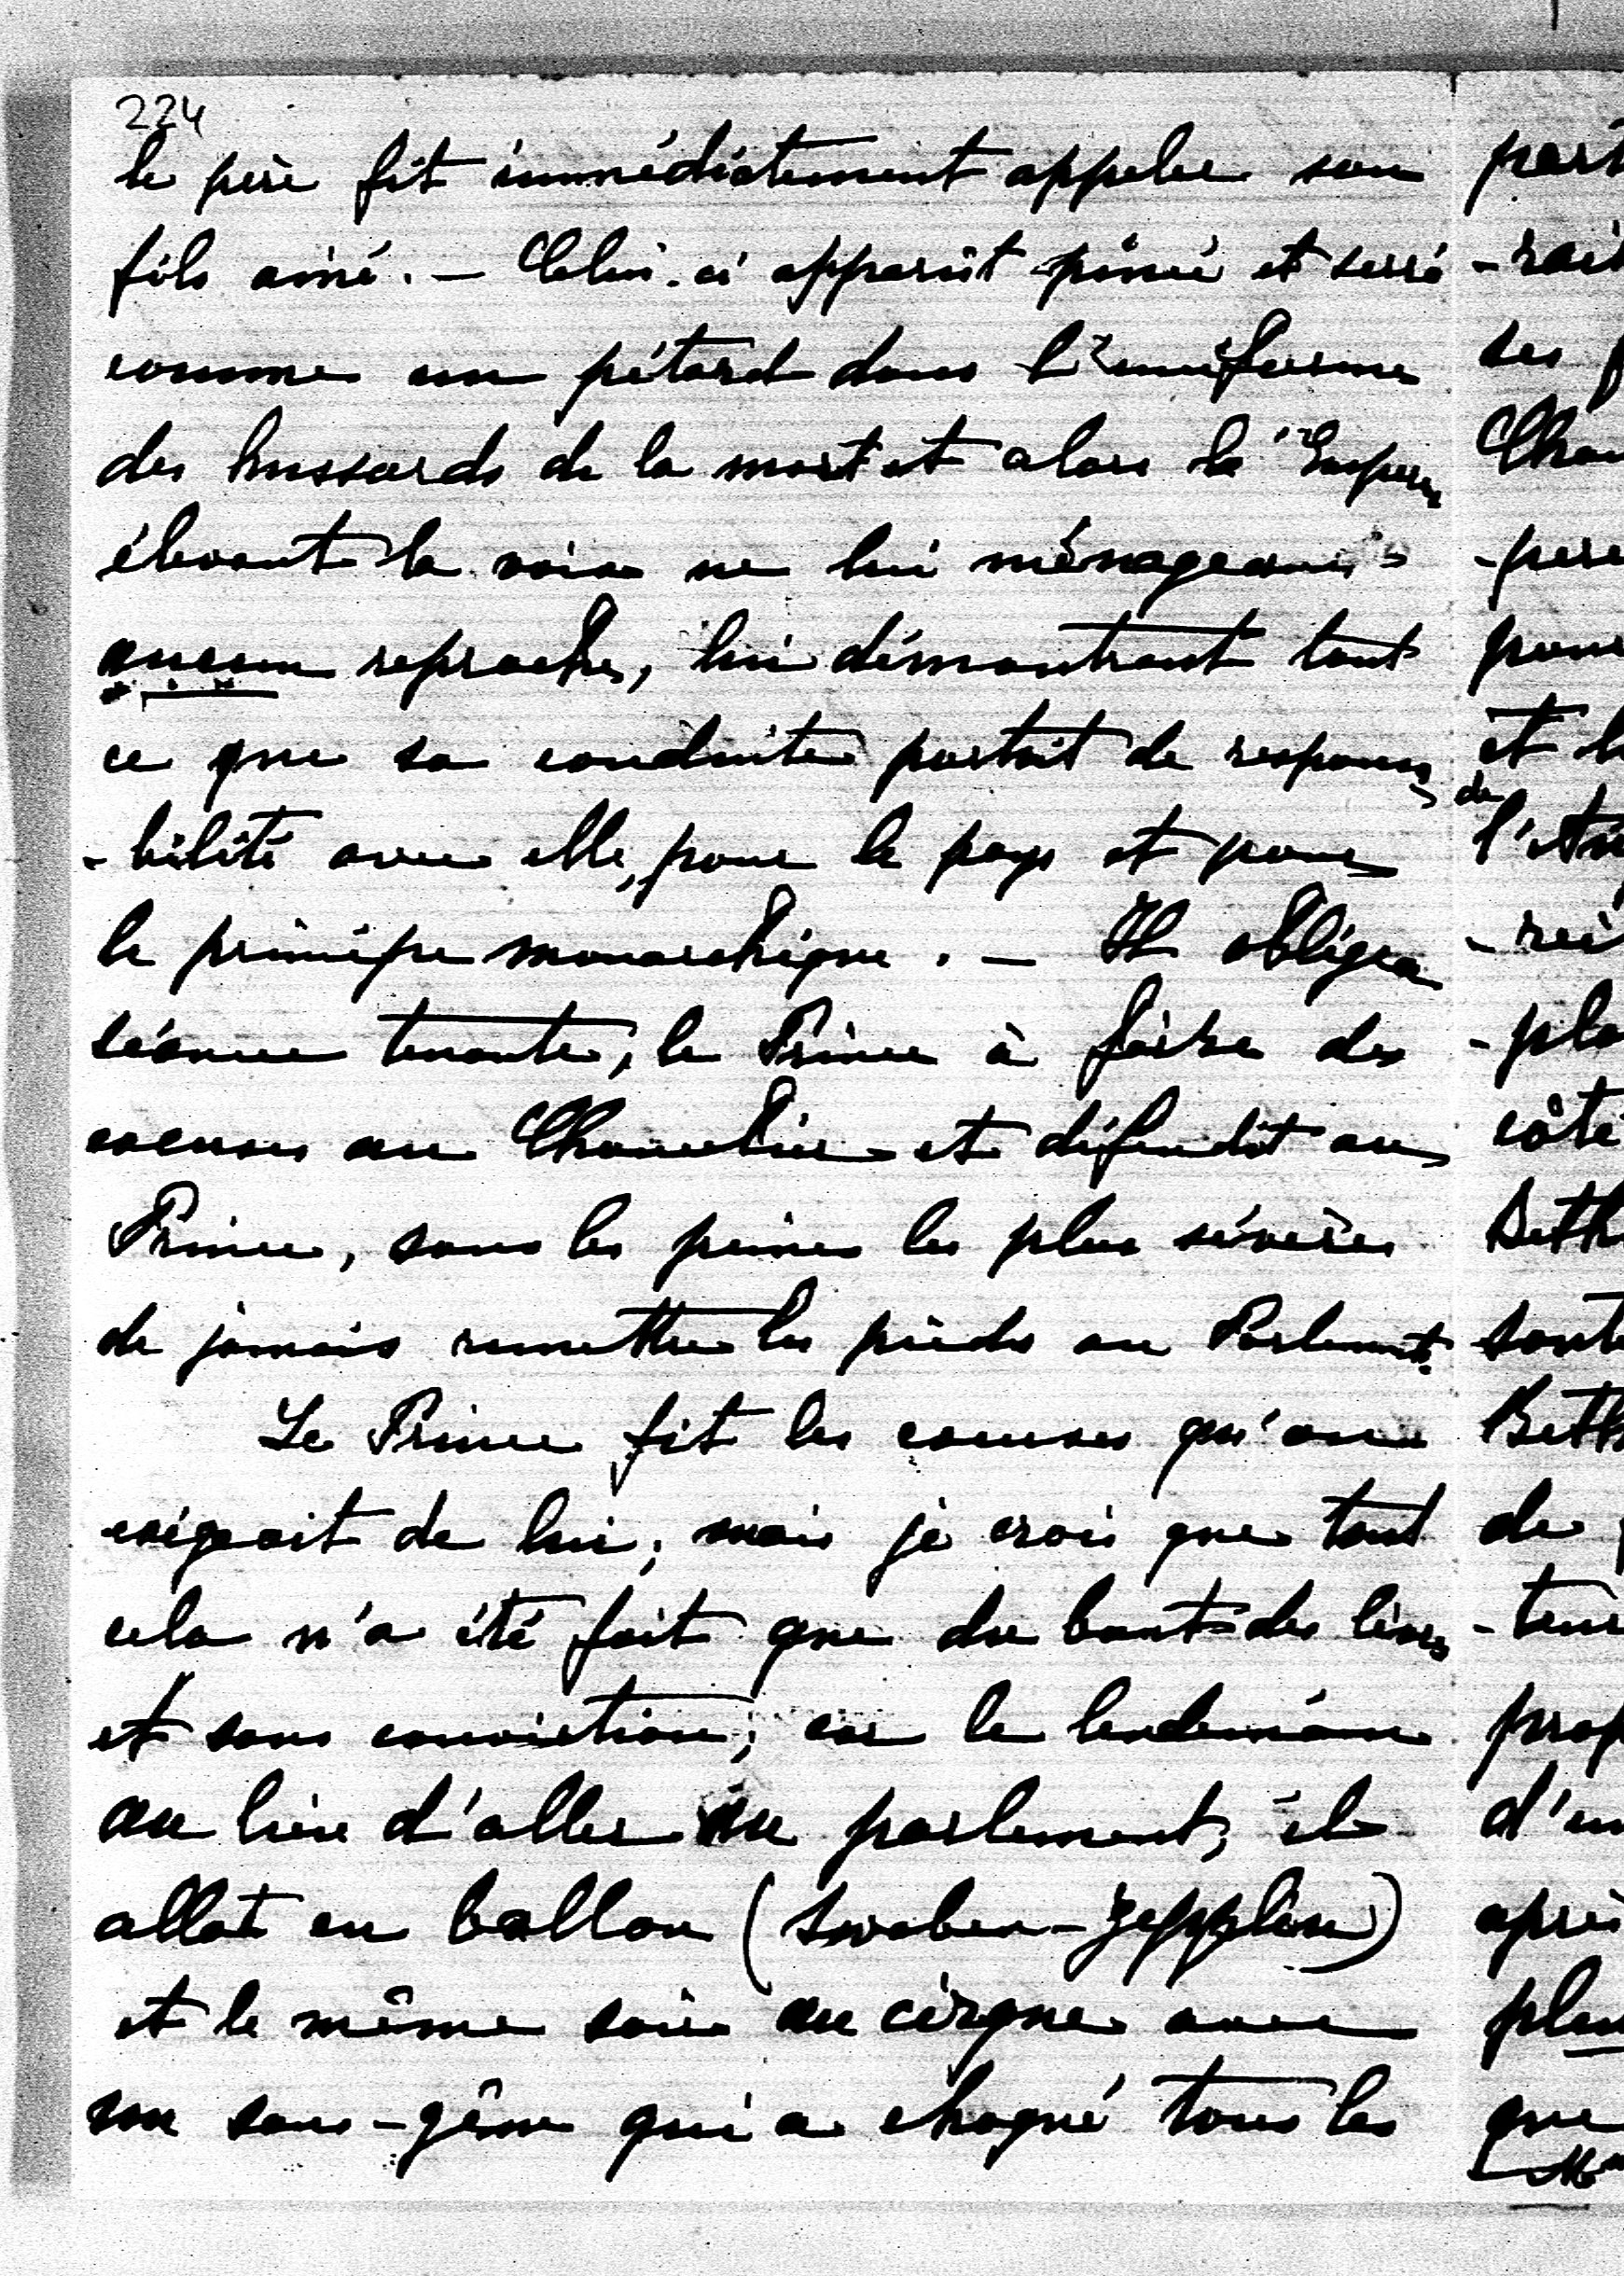 224
le père fit immédiatement appeler son
fils aîné. — Celui-ci apparût pincé et serré
comme un pétard dans l'uniforme
des hussards de la mort et alors l'Empereur
élevant la voix ne lui ménageant
aucun reproche, lui démontrant tout
ce que sa conduite portait de responsa
-bilité avec elle, pour le pays et pour
le principe monarchique. — Il obligea
séance tenante, le Prince à faire des
excuses au Chancelier et défendit au
Prince, sous les peines les plus sévères
de jamais remettre les pieds au Parlement.
Le Prince fit les excuses qu'on
exigeait de lui; mais je crois que tout
cela n'a été fait que du bout des lèvres
et sans conviction; car le lendemain
au lieu d'aller au parlement, il
allat en ballon (Swaben-Zepplin)
et le même soir au cirque avec
son sans-gêne qui a choqué tous les